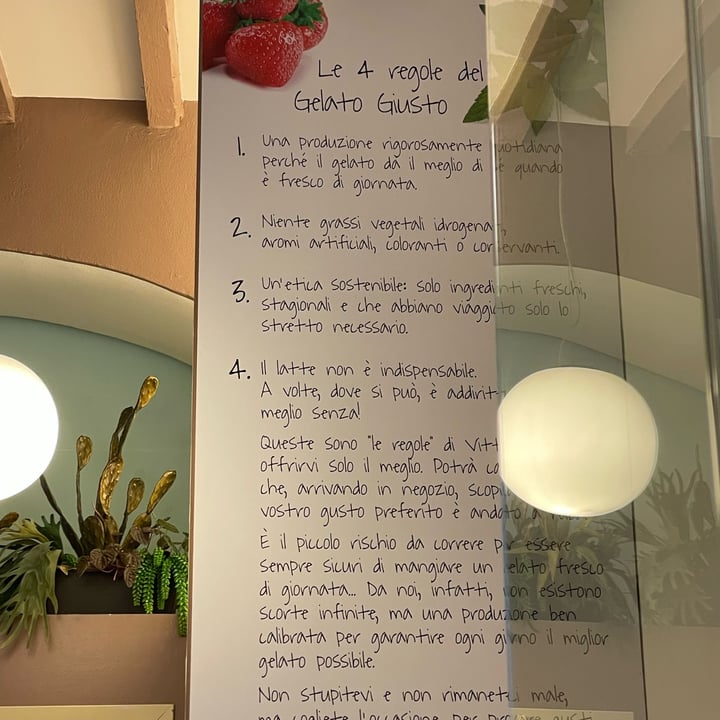 Le 4 regole del
Gelato Giusto
1. Una produzione rigorosamente quotidiana
perché il gelato dà il meglio di sé quando
è fresco di giornata.
2. Niente grassi vegetali idrogenati,
aromi artificiali, coloranti o conservanti.
3. Un'etica sostenibile: solo ingredienti freschi,
stagionali e che abbiano viaggiato solo lo
stretto necessario.
4. Il latte non è indispensabile.
A volte, dove si può, è addirit
meglio senza!
Queste sono "le regole" di Vitt
offrirvi solo il meglio. Potrà
che, arrivando in negozio,
vostro gusto preferito è andato a
È il piccolo rischio da correre per essere
sempre sicuri di mangiare un gelato fresco
di giornata... Da noi, infatti, non esistono
scorte infinite, ma una produzione ben
calibrata per garantire ogni giorno il miglior
gelato possibile.
Non stupitevi e non rimaneteci male,
ma cogliete l'occasione per